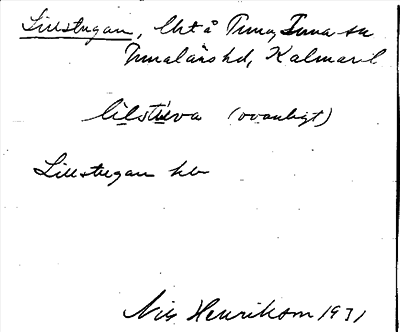 Lillstugan, lht å Tuna, Tuna sn
Tunaläns hd, Kalmar l
lilstuva (ovanligt)
Lillstugan kb
Nils Henrikson 1931